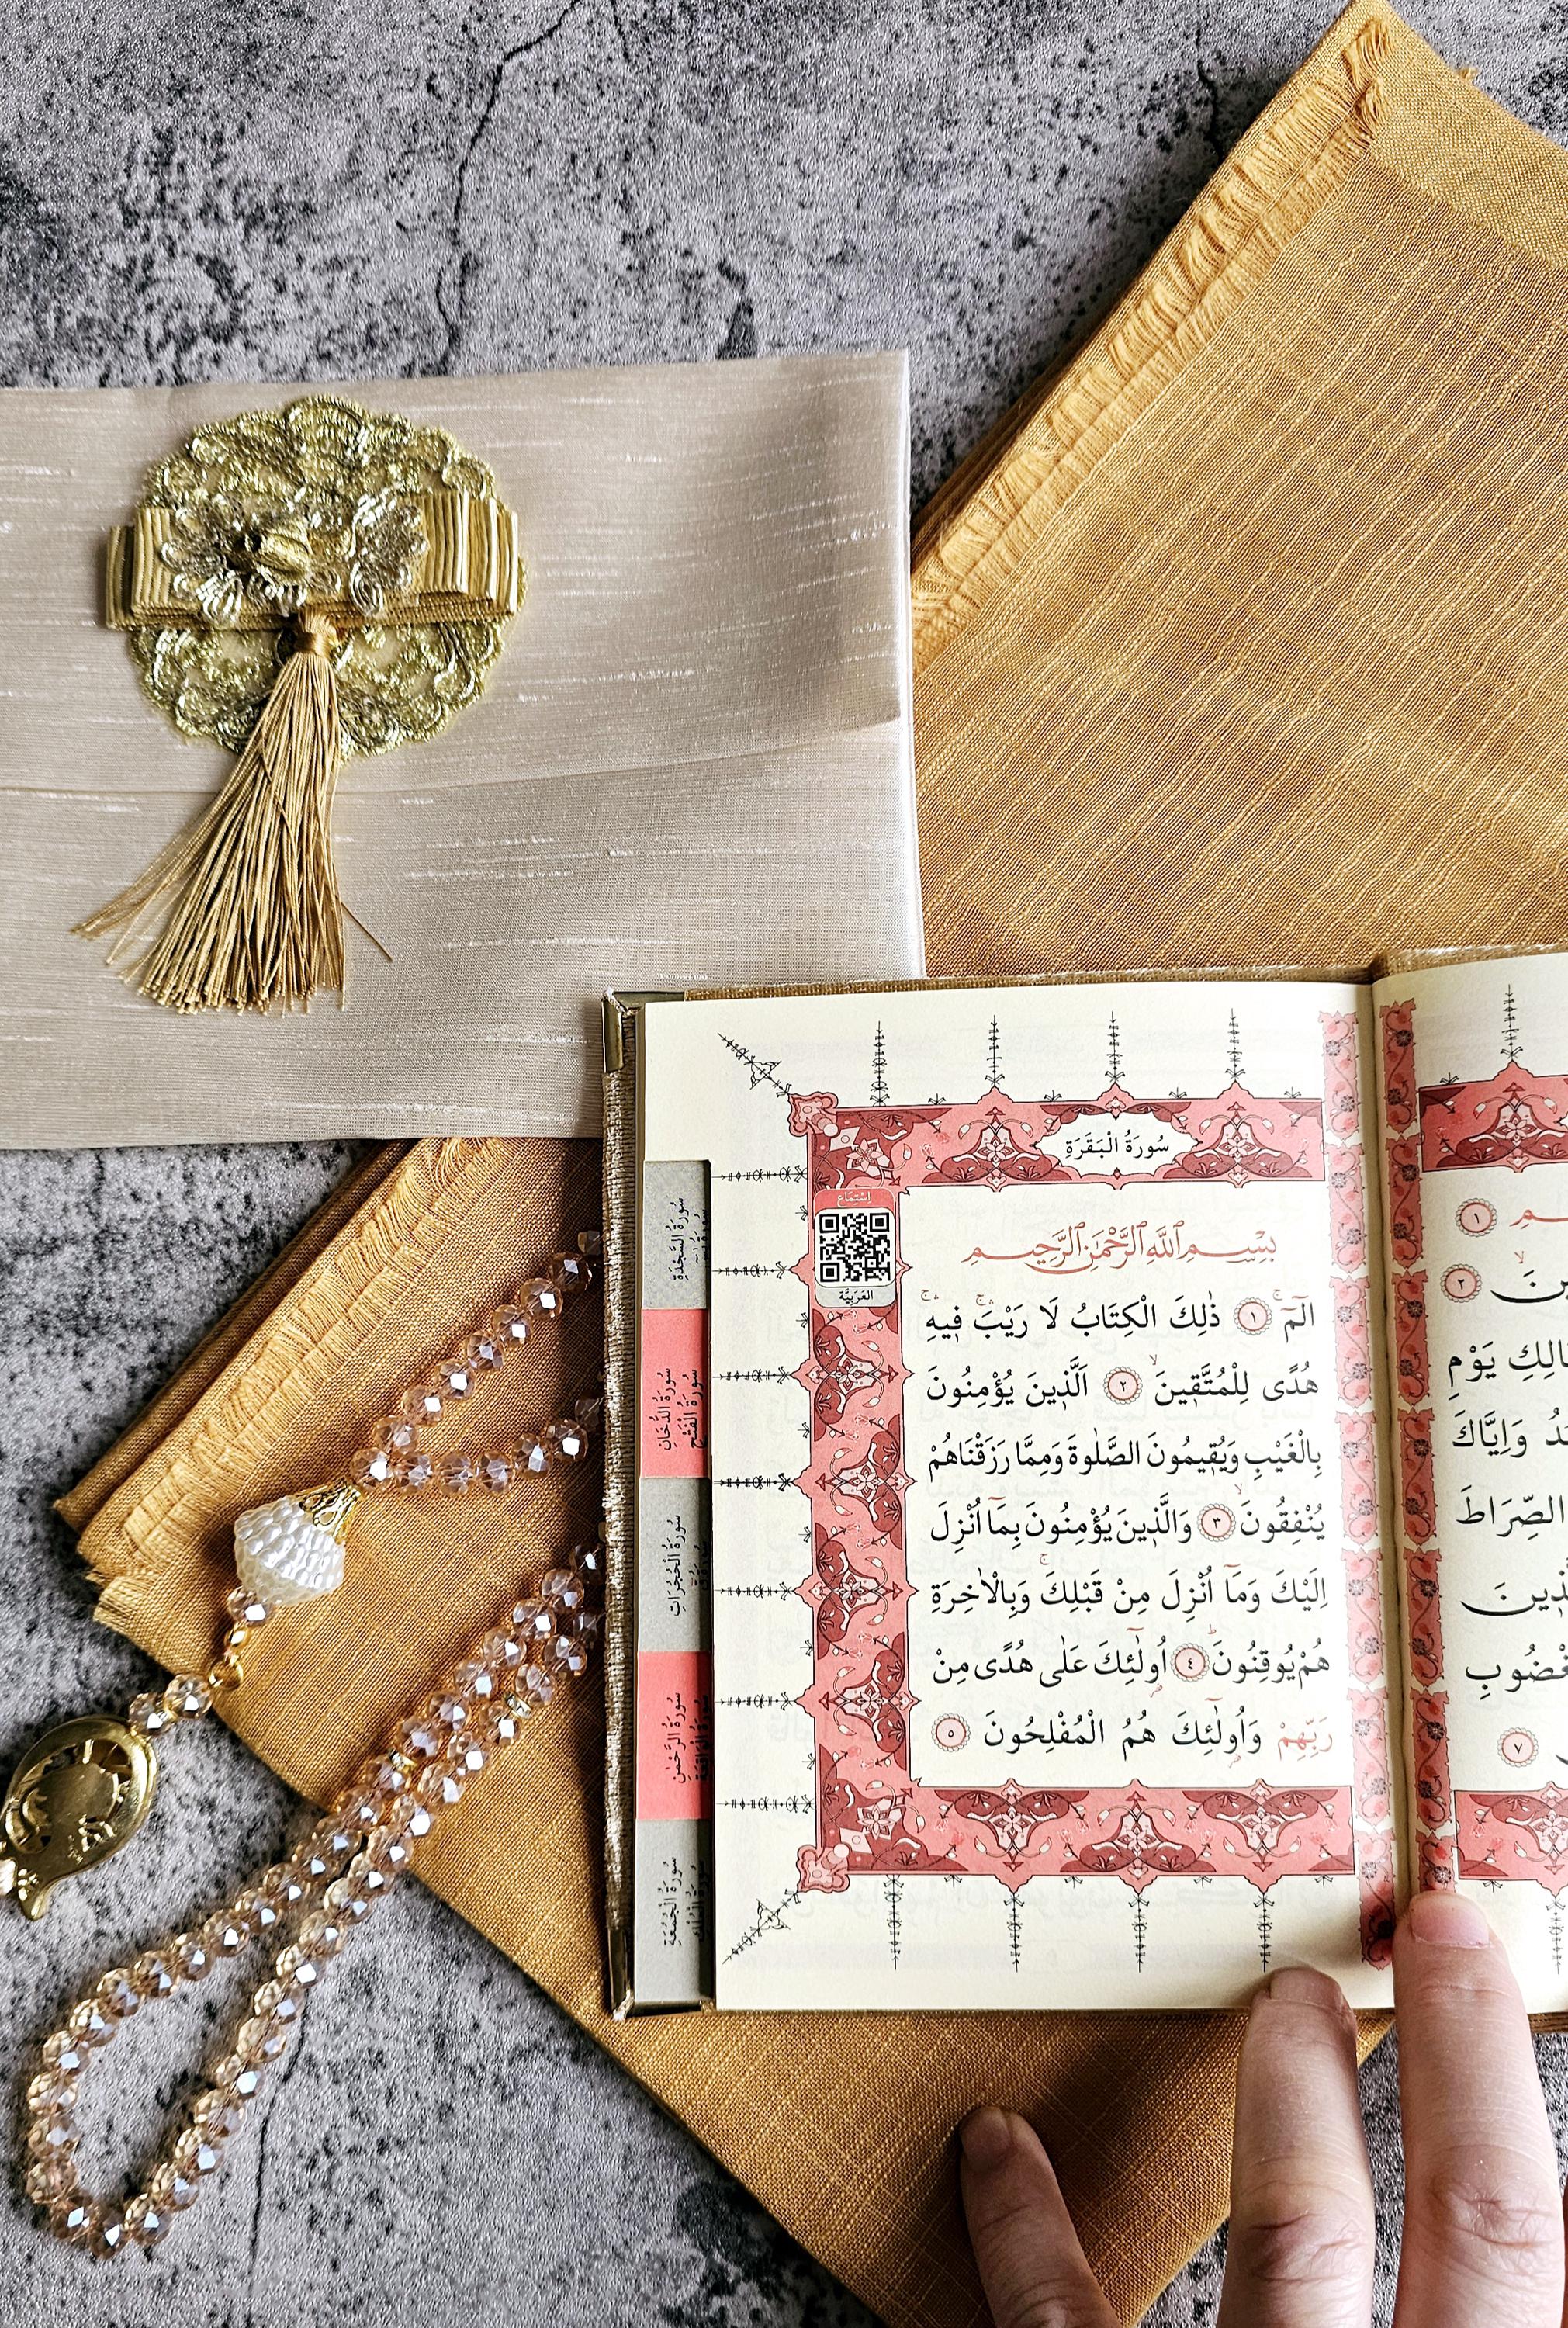 سُورَةُ الْبَقَرَةِ
اِسْتِمَاع
الْعَرَبِيَّة
بِسْمِ اللّٰهِ الرَّحْمٰنِ الرَّحِيمِ
الٓمٓ ۚ ﴿١﴾ ذٰلِكَ الْكِتَابُ لَا رَيْبَ ۚۛ فِيهِ ۚۛ
هُدًى لِلْمُتَّقِينَ ۙ ﴿٢﴾ اَلَّذِينَ يُؤْمِنُونَ
بِالْغَيْبِ وَيُقِيمُونَ الصَّلٰوةَ وَمِمَّا رَزَقْنَاهُمْ
يُنْفِقُونَ ۙ ﴿٣﴾ وَالَّذِينَ يُؤْمِنُونَ بِمَٓا اُنْزِلَ
اِلَيْكَ وَمَٓا اُنْزِلَ مِنْ قَبْلِكَ ۚ وَبِالْاٰخِرَةِ
هُمْ يُوقِنُونَ ۜ ﴿٤﴾ اُولٰٓئِكَ عَلٰى هُدًى مِنْ
رَبِّهِمْ وَاُولٰٓئِكَ هُمُ الْمُفْلِحُونَ ﴿٥﴾
١
٢
مَالِكِ يَوْمِ
وَاِيَّاكَ
الصِّرَاطَ
٧
سُورَةُ السَّجْدَةِ
سُورَةُ الدُّخَانِ
سُورَةُ الْفَتْحِ
سُورَةُ الْحُجُرَاتِ
سُورَةُ الرَّحْمٰنِ
سُورَةُ الْوَاقِعَةِ
سُورَةُ الْجُمُعَةِ